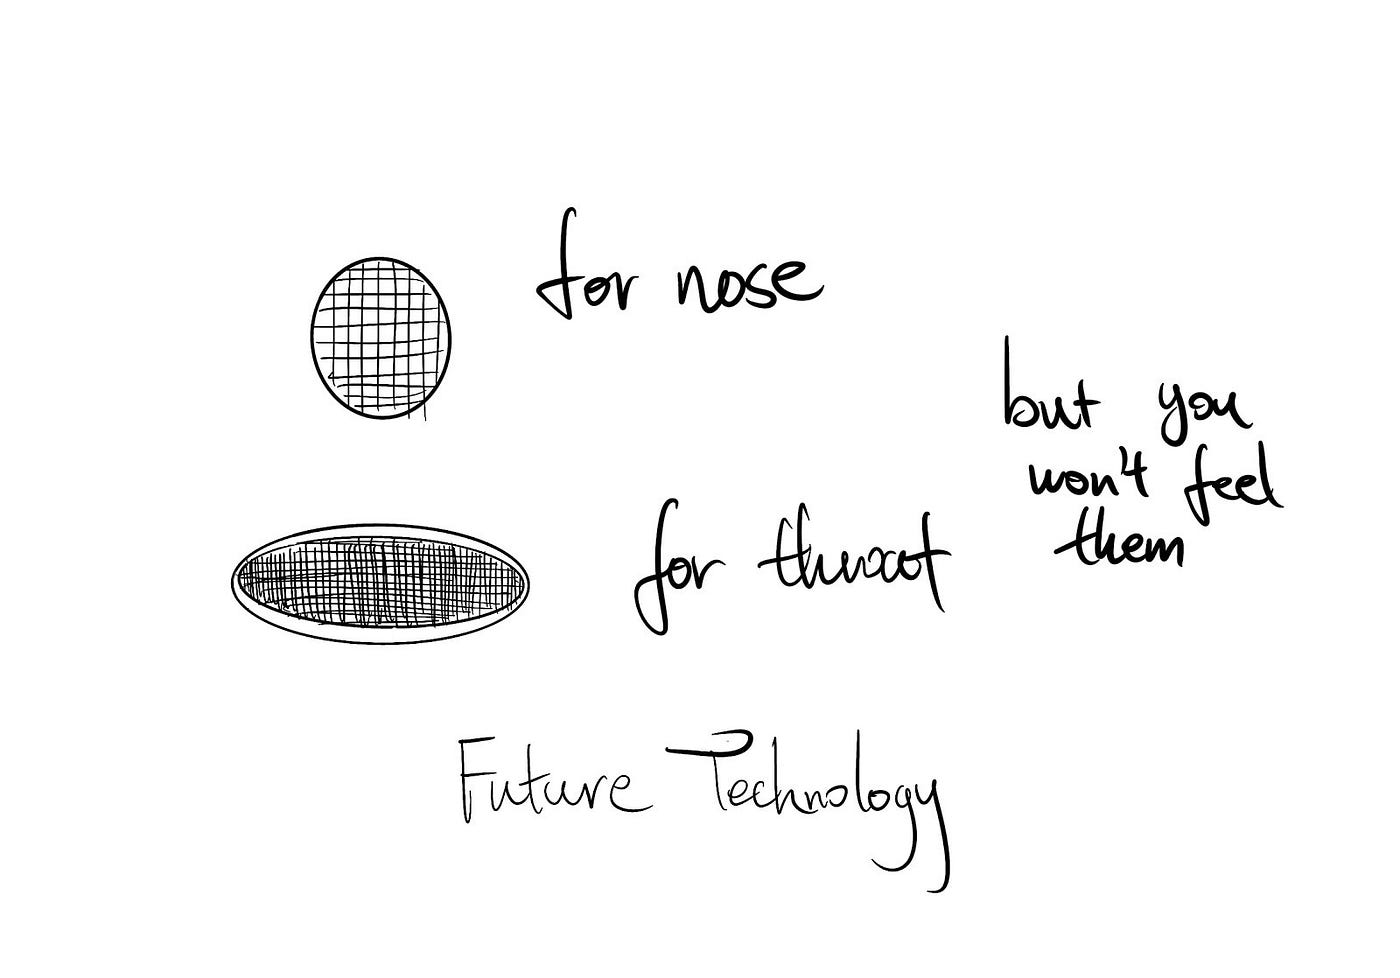 for nose
but you
won't feel
them
for throat
Future Technology